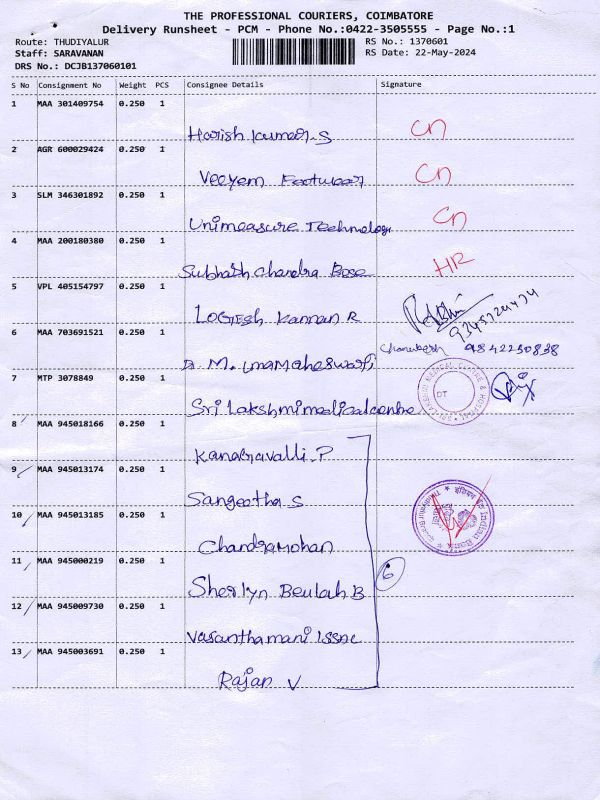 THE PROFESSIONAL COURIERS, COIMBATORE
Delivery Runsheet - PCM - Phone No.:0422-3505555 - Page No.:1
Route: THUDIYALUR
RS No.: 1370601
Staff: SARAVANAN
RS Date: 22-May-2024
DRS No.: DCJB137060101
S No Consignment No Weight PCS Consignee Details Signature
1 MAA 301409754 0.250 1
Harish Kumar. S CN
2 AGR 600029424 0.250 1
Veeyem Footwear CN
3 SLM 346301892 0.250 1
Unimeasure Technology CN
4 MAA 200180380 0.250 1
Subhash Chandra Bose HR
5 VPL 405154797 0.250 1
LOGESh Kannan R
6 MAA 703691521 0.250 1
M. UmaMaheswari 9842230838
7 MTP 3078849 0.250 1
Sri Lakshmi medical centre DT
8 MAA 945018166 0.250 1
Kanagavalli. P
9 MAA 945013174 0.250 1
Sangeetha S
10 MAA 945013185 0.250 1
Chandramohan
11 MAA 945000219 0.250 1
6
Sherlyn Beulah B
12 MAA 945009730 0.250 1
Vasanthamani
13 MAA 945003691 0.250 1
Rajan V
Indian Bank